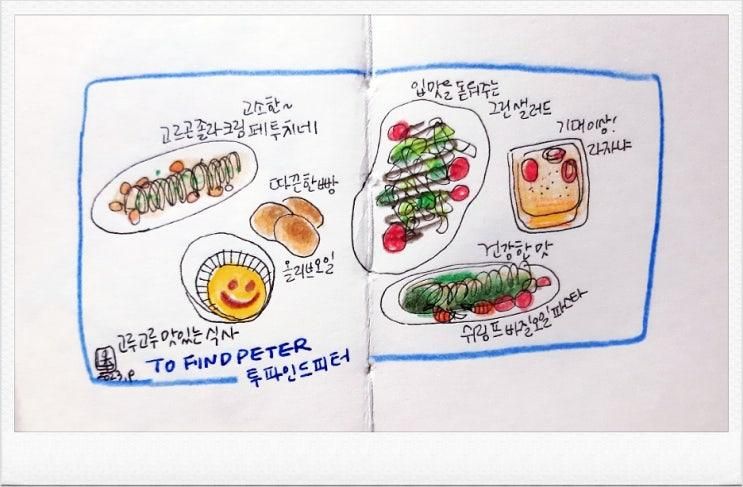 고소한~
고르곤졸라크림페투치네
따끈한빵
올리브오일
고루고루 맛있는 식사
TO FIND PETER
투파인드피터
입맛을 돋워주는
그린샐러드
기대이상!
라자냐
건강한 맛
쉬림프바질오일파스타